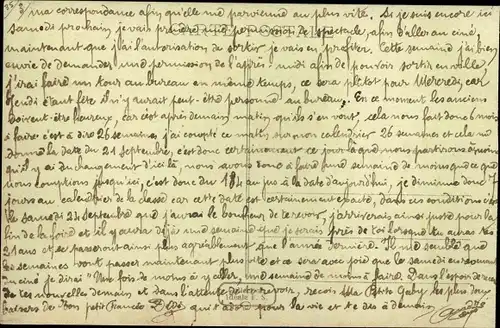 35/3/ ma correspondance afin qu'elle me parvienne au plus vite. Si je suis encore ici
samedi prochain je vais prendre une permission de spectacle, afin d'aller au ciné
maintenant que j'ai l'autorisation de sortir je vais en profiter. Cette semaine j'ai bien
envie de demander une permission de l'après midi afin de pouvoir sortir en ville,
j'irai faire un tour au bureau en même temps, ce sera plutôt pour Mercredi car
Jeudi étant fête il n'y aurait peut-être personne au bureau. En ce moment les anciens
doivent être heureux, car c'est après demain matin qu'ils s'en vont, cela nous fait donc 6 mois
à faire c'est à dire 26 semaines, j'ai compté ce matin sur mon calendrier 26 semaines et cela me
donne la date du 21 Septembre, c'est donc certainement ce jour là que nous partirons à moins
qu'il y ai du changement d'ici là, nous avons donc à faire une semaine de moins que ce que
nous comptions jusqu'ici, c'est donc du 184 au jus à la date d'aujourd'hui, je diminue donc 7
jours au calendrier de la classe car cette date est certainement exacte, dans ces conditions c'est
le samedi 24 Septembre que j'aurai le bonheur de te revoir, j'arriverais ainsi juste pour la
fin de la foire et il y aura déjà une semaine que je serais près de toi lorsque tu auras tes
21 ans et se passeront ainsi plus agréablement que l'année dernière. Il me semble que
semaines vont passer maintenant plus vite et ce sera avec joie que le samedi en revenant
du ciné je dirai "Une fois de moins à y aller, une semaine de moins à faire. Dans l'espoir de
tes nouvelles demain et dans l'attente de te revoir, reçois Ma Petite Gaby les plus doux
baisers de ton petit fiancé Dédé qui t'adore pour la vie et te dis à demain
Dédé